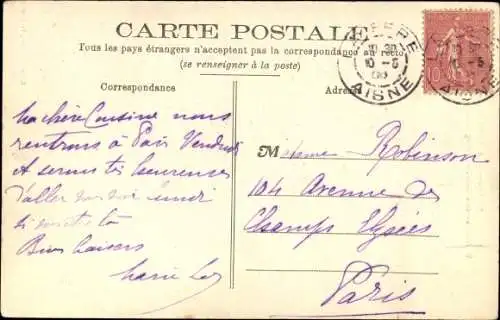 CARTE POSTALE
Tous les pays étrangers n'acceptent pas la correspondance au recto
(se renseigner à la poste)
Correspondance
Adresse
10 30
10 - 5
AISNE
10
Ma chère Cousine nous
rentrons à Paris Vendredi
et serons très heureuses
d'aller vous voir lundi
Bons baisers
Marie
Madame Robinson
104 Avenue des
Champs Elysées
Paris